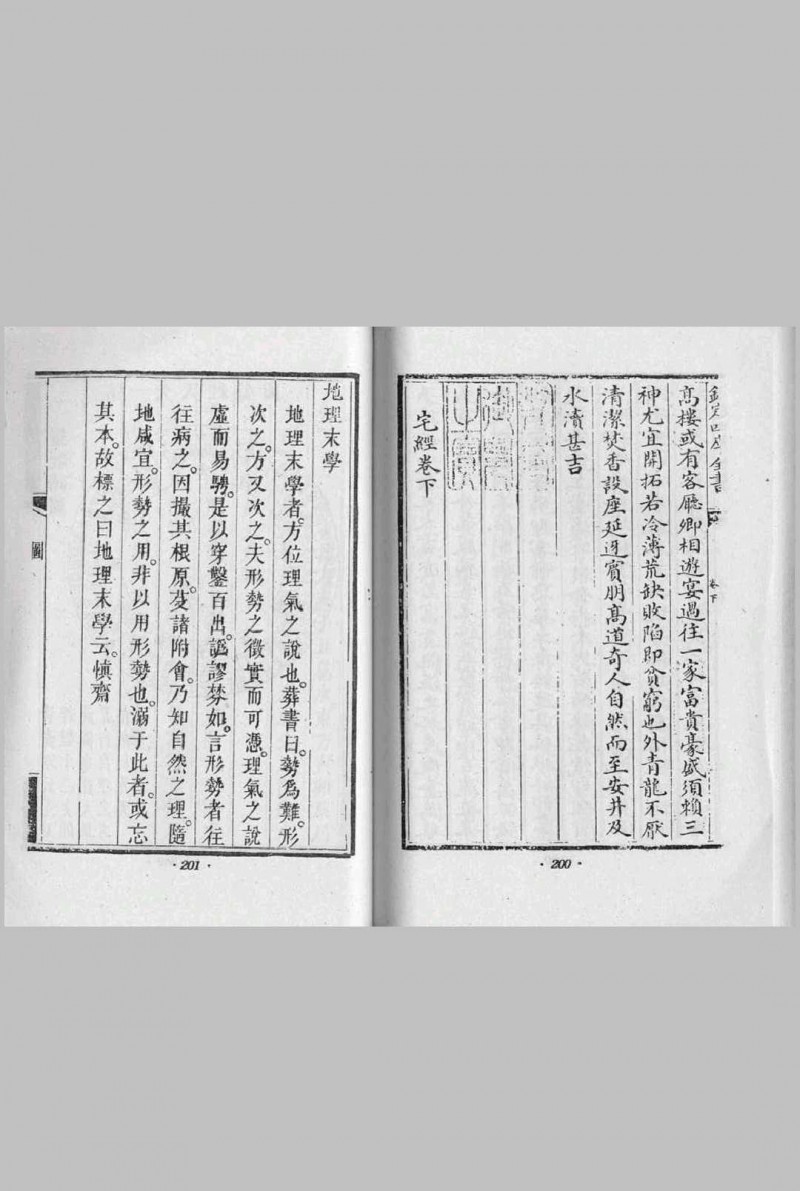 欽定四庫全書
卷下
高樓或有客廳卿相遊宴過往一家富貴豪盛須賴三
神尤宜開拓若冷薄荒缺敗陷即貧窮也外青龍不厭
清潔焚香設座延迓賓朋高道奇人自然而至安井及
水瀆甚吉
宅經卷下
·200·
地理末學
地理末學者。方位理氣之說也。葬書曰。勢為難。形
次之。方又次之。夫形勢之徵實而可憑。理氣之說
虛而易騁。是以穿鑿百出。譌謬棼如。言形勢者往
往病之。因撮其根原。芟諸附會。乃知自然之理。隨
地咸宜。形勢之用。非以用形勢也。溺于此者。或忘
其本。故標之曰地理末學云。慎齋
圖
·201·